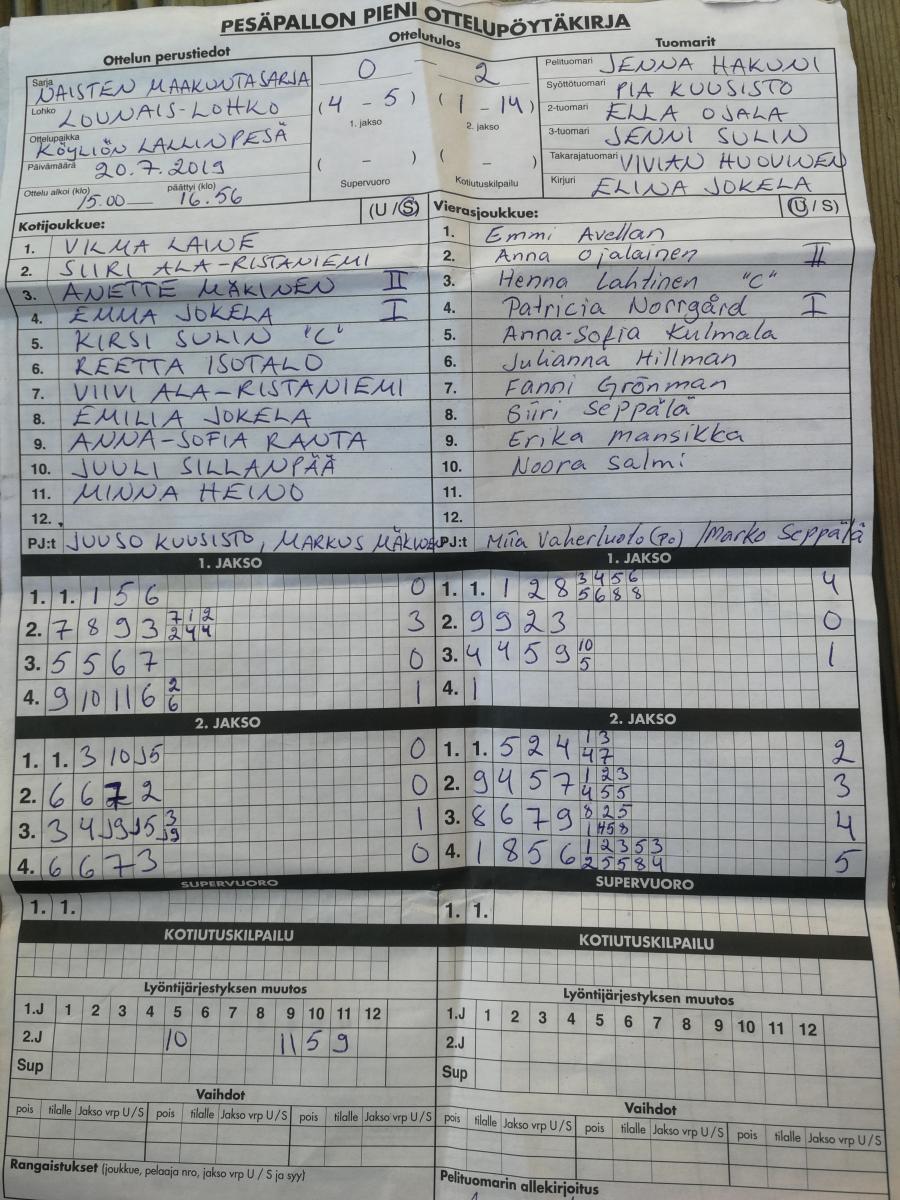 PESÄPALLON PIENI OTTELUPÖYTÄKIRJA
Ottelun perustiedot
Ottelutulos
Tuomarit
Sarja NAISTEN MAAKUNTASARJA
Lohko LOUNAIS-LOHKO
Ottelupaikka KÖYLIÖN LALLINPESÄ
Päivämäärä 20.7.2019
Ottelu alkoi (klo) 15.00 päättyi (klo) 16.56
0 – 2
(4 – 5) (1 – 14)
1. jakso 2. jakso
( – ) ( – )
Supervuoro Kotiutuskilpailu
Pelituomari JENNA HAKUNI
Syöttötuomari PIA KUUSISTO
2-tuomari ELLA OJALA
3-tuomari JENNI SULIN
Takarajatuomari VIVIAN HUOVINEN
Kirjuri ELINA JOKELA
Kotijoukkue: (U/S)
1. VILMA LAINE
2. SIIRI ALA-RISTANIEMI
3. ANETTE MÄKINEN II
4. EMMA JOKELA I
5. KIRSI SULIN "C"
6. REETTA ISOTALO
7. VIIVI ALA-RISTANIEMI
8. EMILIA JOKELA
9. ANNA-SOFIA RANTA
10. JUULI SILLANPÄÄ
11. MINNA HEINO
12.
PJ:t JUUSO KUUSISTO, MARKUS MÄKINEN
Vierasjoukkue: (U/S)
1. Emmi Avellan
2. Anna Ojalainen II
3. Henna Lahtinen "C"
4. Patricia Norrgård I
5. Anna-Sofia Kulmala
6. Julianna Hillman
7. Fanni Grönman
8. Siiri Seppälä
9. Erika Mansikka
10. Noora Salmi
11.
12.
PJ:t Miia Vaherluoto (po) / Marko Seppälä
1. JAKSO
1. 1. 1 5 6 0
2. 7 8 9 3 7 1 2 3
2 4 4
3. 5 5 6 7 0
4. 9 10 11 6 2 1
6
1. JAKSO
1. 1. 1 2 8 3 4 5 6 4
5 6 8 8
2. 9 9 2 3 0
3. 4 4 5 9 10 1
5
4. 1
2. JAKSO
1. 1. 3 10 J5 0
2. 6 6 7 2 0
3. 3 4 J9 J5 3 1
J9
4. 6 6 7 3 0
2. JAKSO
1. 1. 5 2 4 1 3 2
4 7
2. 9 4 5 7 1 2 3 3
4 5 5
3. 8 6 7 9 8 2 5 4
1 4 5 8
4. 1 8 5 6 1 2 3 5 3 5
2 5 5 8 4
SUPERVUORO
1. 1.
SUPERVUORO
1. 1.
KOTIUTUSKILPAILU
KOTIUTUSKILPAILU
Lyöntijärjestyksen muutos
1.J 1 2 3 4 5 6 7 8 9 10 11 12
2.J 10 11 5 9
Sup
Lyöntijärjestyksen muutos
1.J 1 2 3 4 5 6 7 8 9 10 11 12
2.J
Sup
Vaihdot
pois tilalle Jakso vrp U/S pois tilalle Jakso vrp U/S pois tilalle Jakso vrp U/S
Vaihdot
pois tilalle Jakso vrp U/S pois tilalle Jakso vrp U/S pois tilalle Jakso vrp U/S
Rangaistukset (joukkue, pelaaja nro, jakso vrp U / S ja syy)
Pelituomarin allekirjoitus